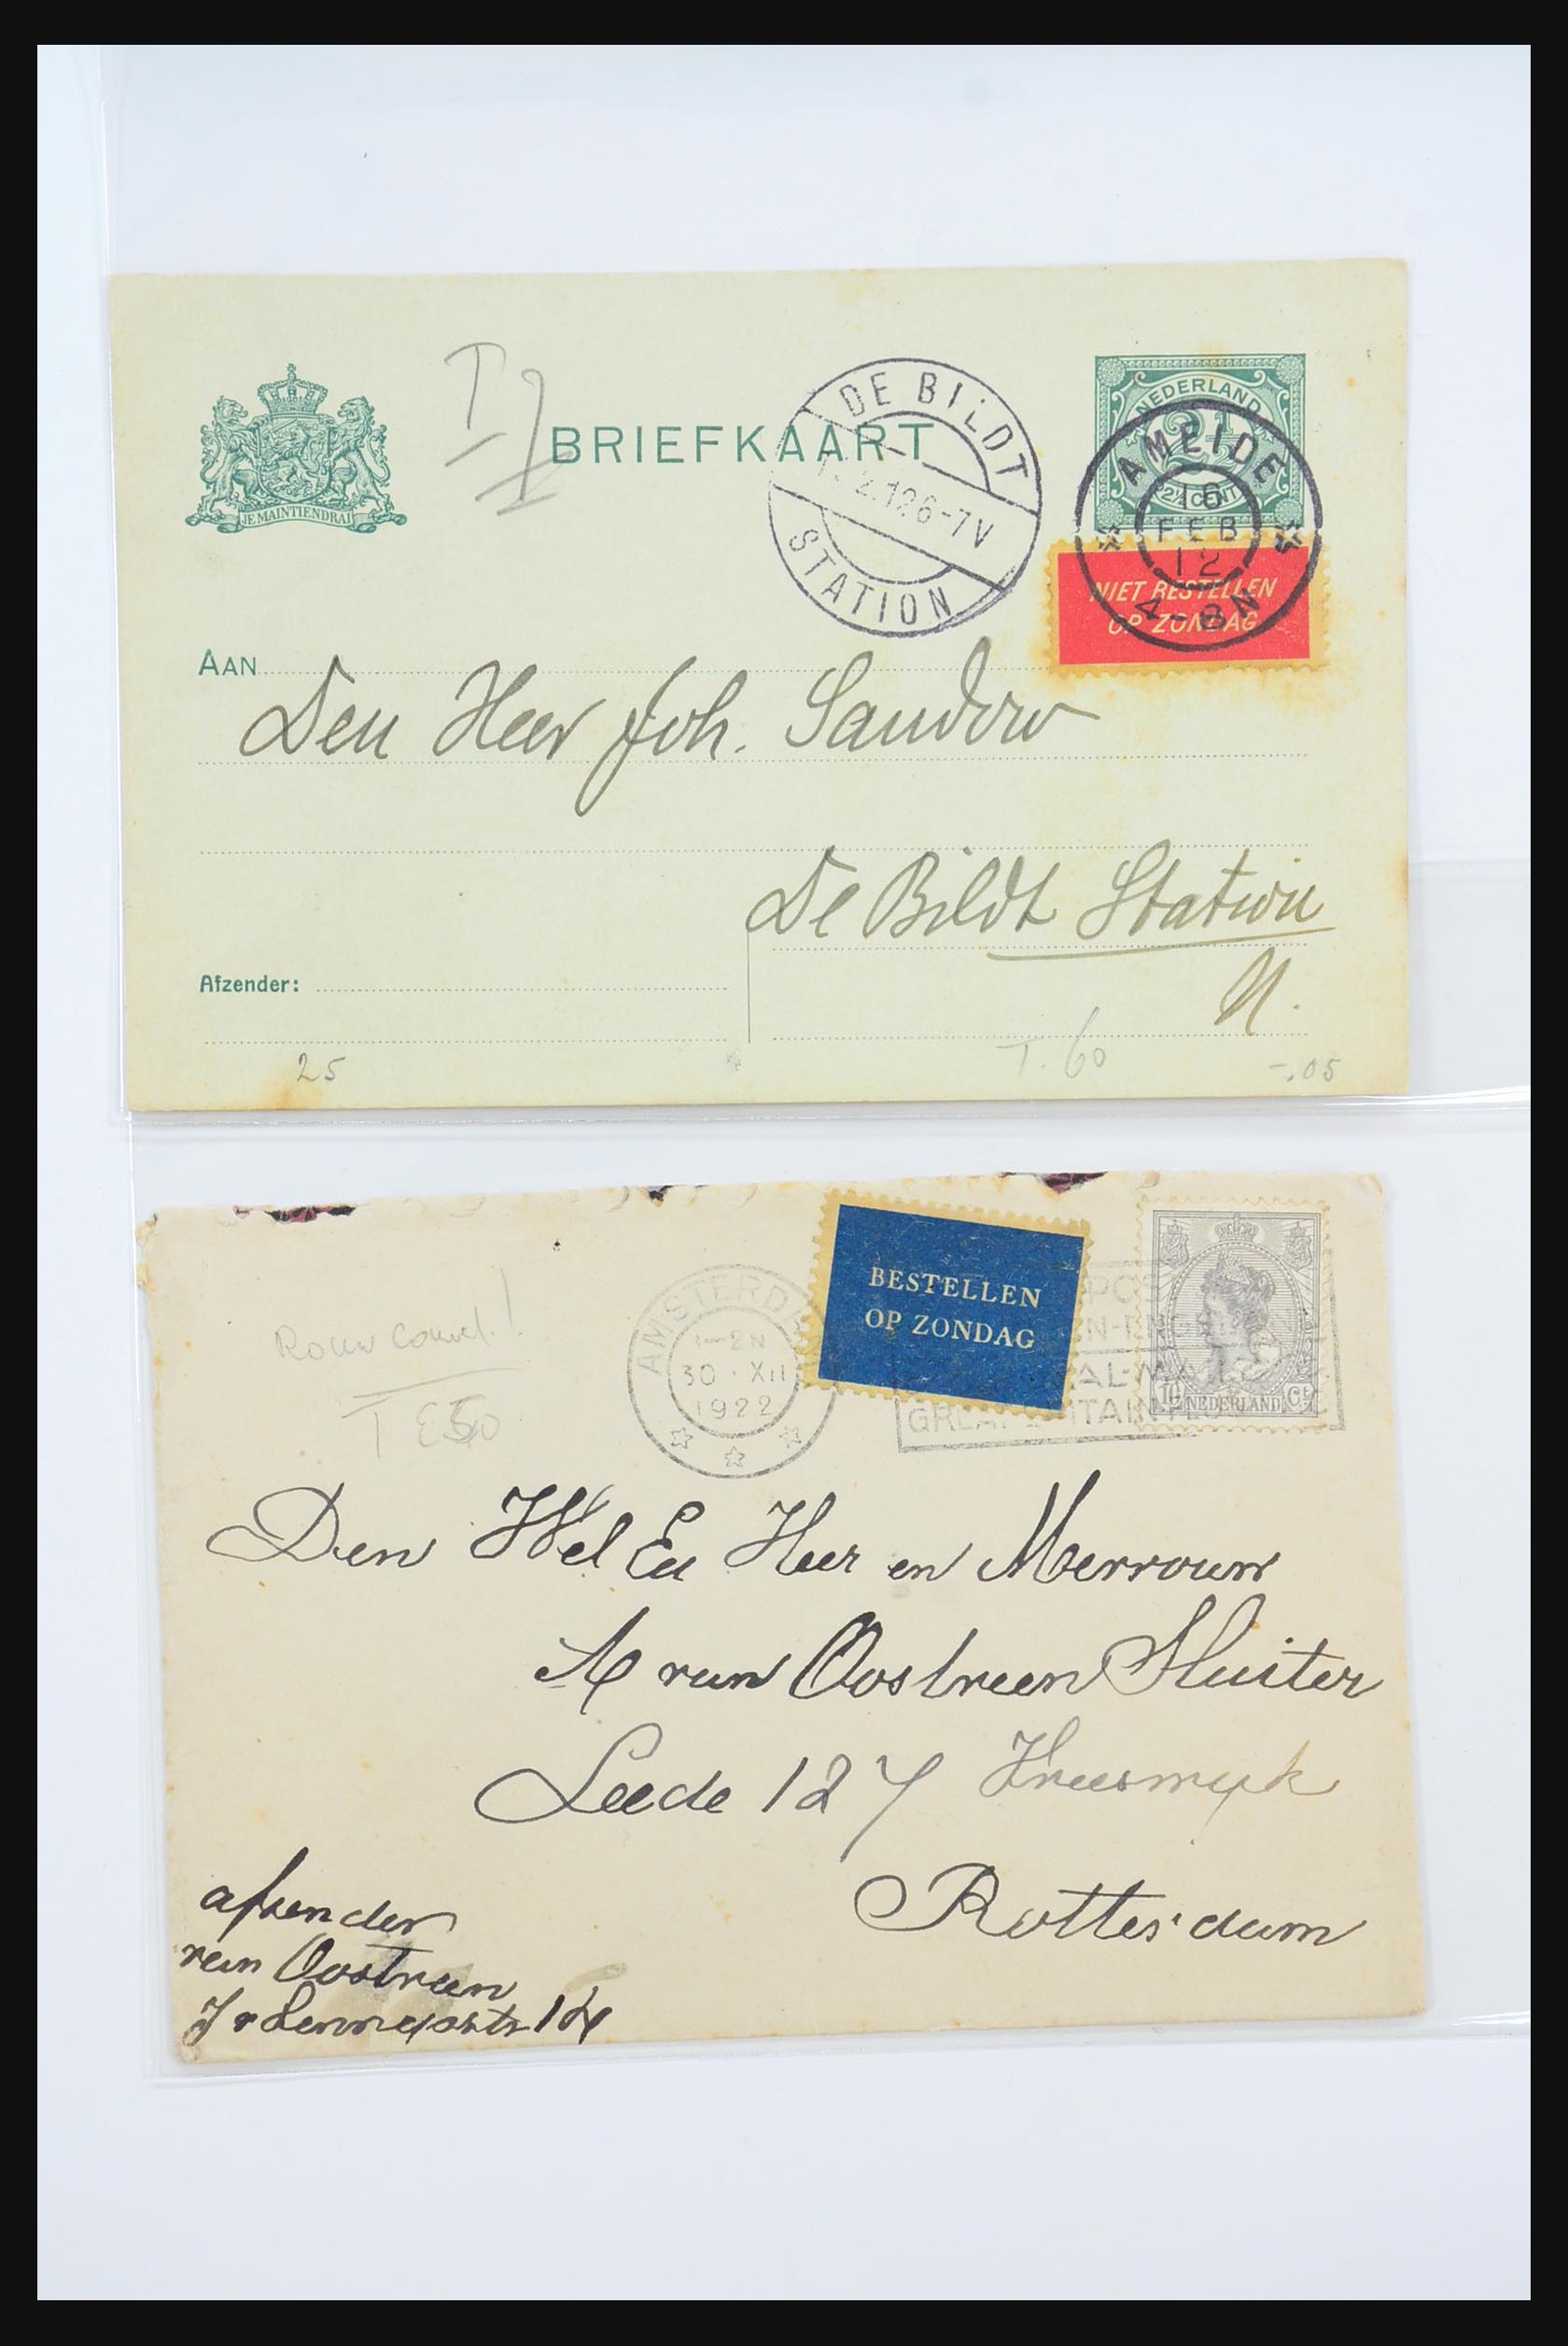 BRIEFKAART
JE MAINTIENDRAI
DE BILDT
2.12 6-7V
STATION
NEDERLAND
2½
2½ CENT
AMEIDE
16
FEB
12
4-8N
NIET BESTELLEN
OP ZONDAG
AAN
Den Heer Joh. Sandow
De Bildt Station
Afzender:
25
T. 60
-.05
AMSTERDA
1-2N
30 . XII
1922
BESTELLEN
OP ZONDAG
10 Ct
NEDERLAND
Rouw
T
Den Wel Ed Heer en Mevrouw
A van Oostveen Sluiter
Leede 127
Rotterdam
afzender
van Oostveen